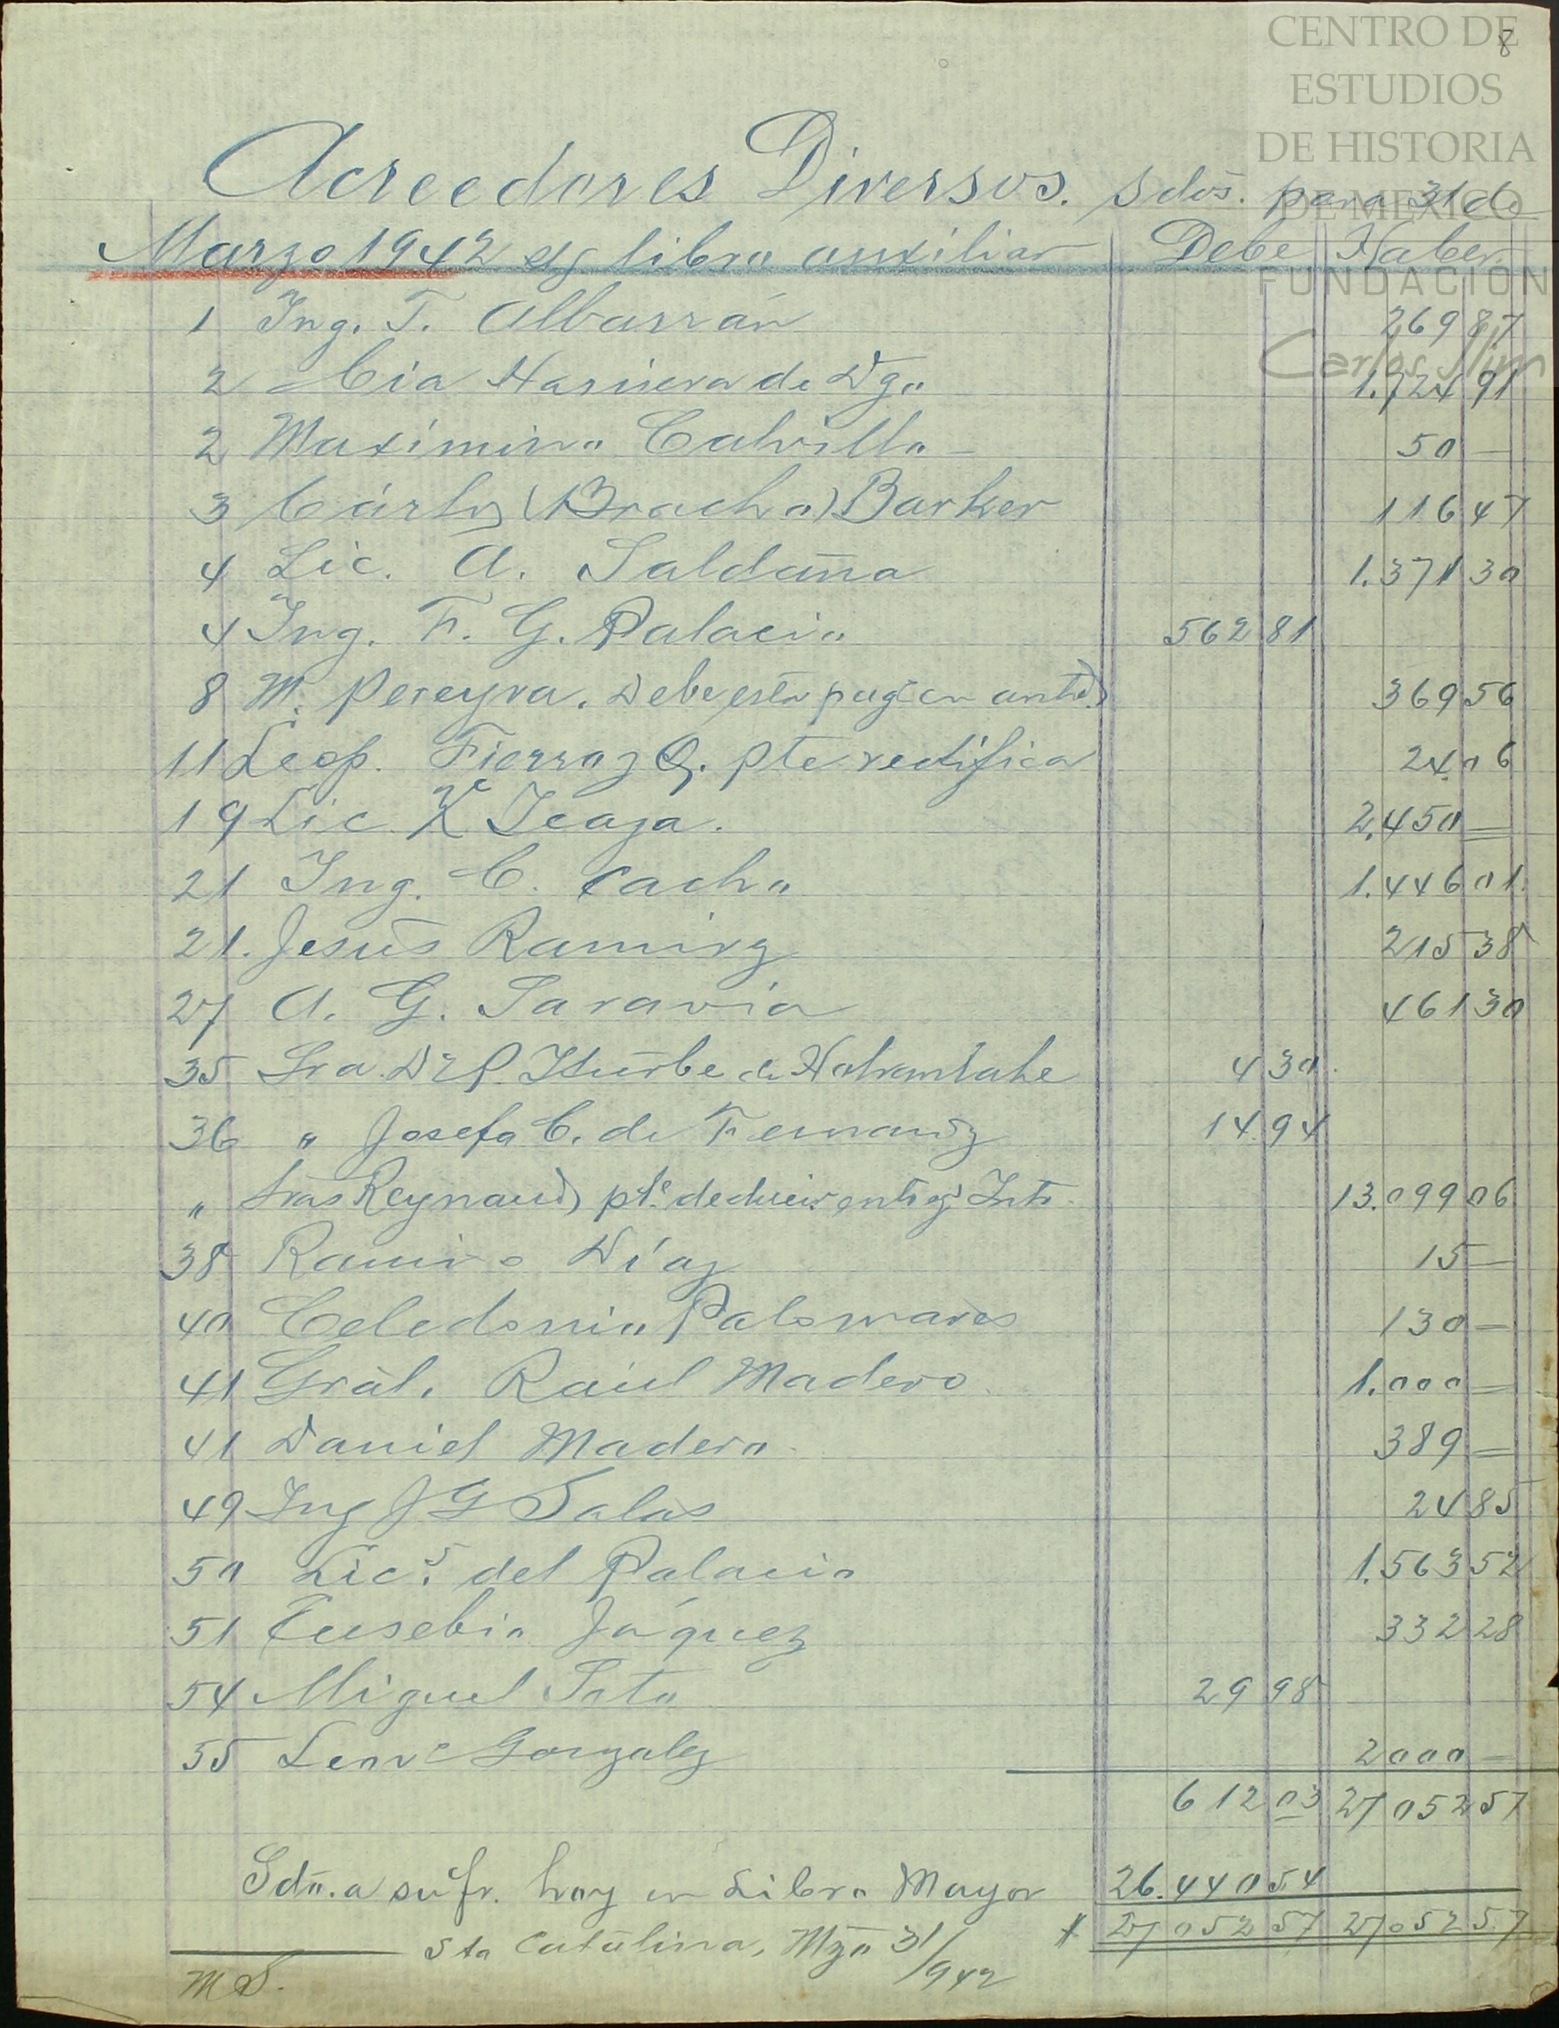 8
CENTRO DE
ESTUDIOS
DE HISTORIA
DE MEXICO
FUNDACION
Carlos Slim
Acreedores Diversos. Sdos. para 31 de
Marzo 1942 sg libro auxiliar Debe Haber
1 Ing. T. Albarrán 269 87
2 Cia Harinera de Dgo 1.724 91
2 Maximino Calvillo 50 —
3 Cárlos (Bracho) Barker 116 47
4 Lic. A. Saldaña 1.371 30
4 Ing. F. G. Palacio 562 81
8 M. Pereyra. Debe estar pag 369 56
11 Leop. Fierro z Q. pte rectifica 24 06
19 Lic. Icaza. 2,450 —
21 Ing. C. Cacho 1.446 01
21. Jesús Ramirz 215 38
27 A. G. Saravia 461 30
35 Sra. Iturbe de 4 30
36 " Josefa C. de Fernandz 14 94
" Sras Reynaud, pte. deducir 13.099 06
38 Ramiro Díaz 15 —
40 Celedonio Palomares 130 —
41 Gral. Raúl Madero 1.000 —
41 Daniel Madero 389 —
49 Ing J G Salas 24 85
50 Lics. del Palacio 1.563 52
51 Eusebio Jáquez 332 28
54 Miguel Soto 29 98
55 Leonc Gonzalez 2000 —
612 03 27 052 57
Sdo. a su fr. hoy en Libro Mayor 26.440 54
27 052 57 27 052 57
Sta Catalina, Mzo 31/942
M S.